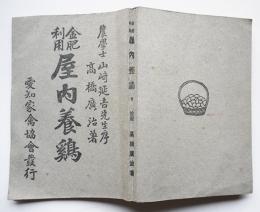 農學士山崎延吉先生序
高橋廣治著
金肥
利用
屋内養鷄
愛知家禽協會發行
屋内養鷄
高橋廣治著